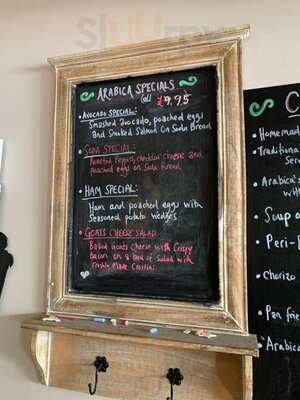 Arabica Specials
all £9.95
Avocado Special:
Smashed avocado, poached egg
and Smoked Salmon On Soda Bread
Soda Special:
Roasted Peppers, cheddar cheese and
poached egg on Soda Bread
Ham Special:
Ham and poached egg with
Seasoned potato wedges
Goats Cheese Salad
Baked Goats Cheese with Crispy
Bacon on a bed of Salad with
Freshly Made Crostini
Homemade
Traditional
Serve
Arabica's
with
Soup o
Peri-P
Chorizo
Pan fried
Arabic